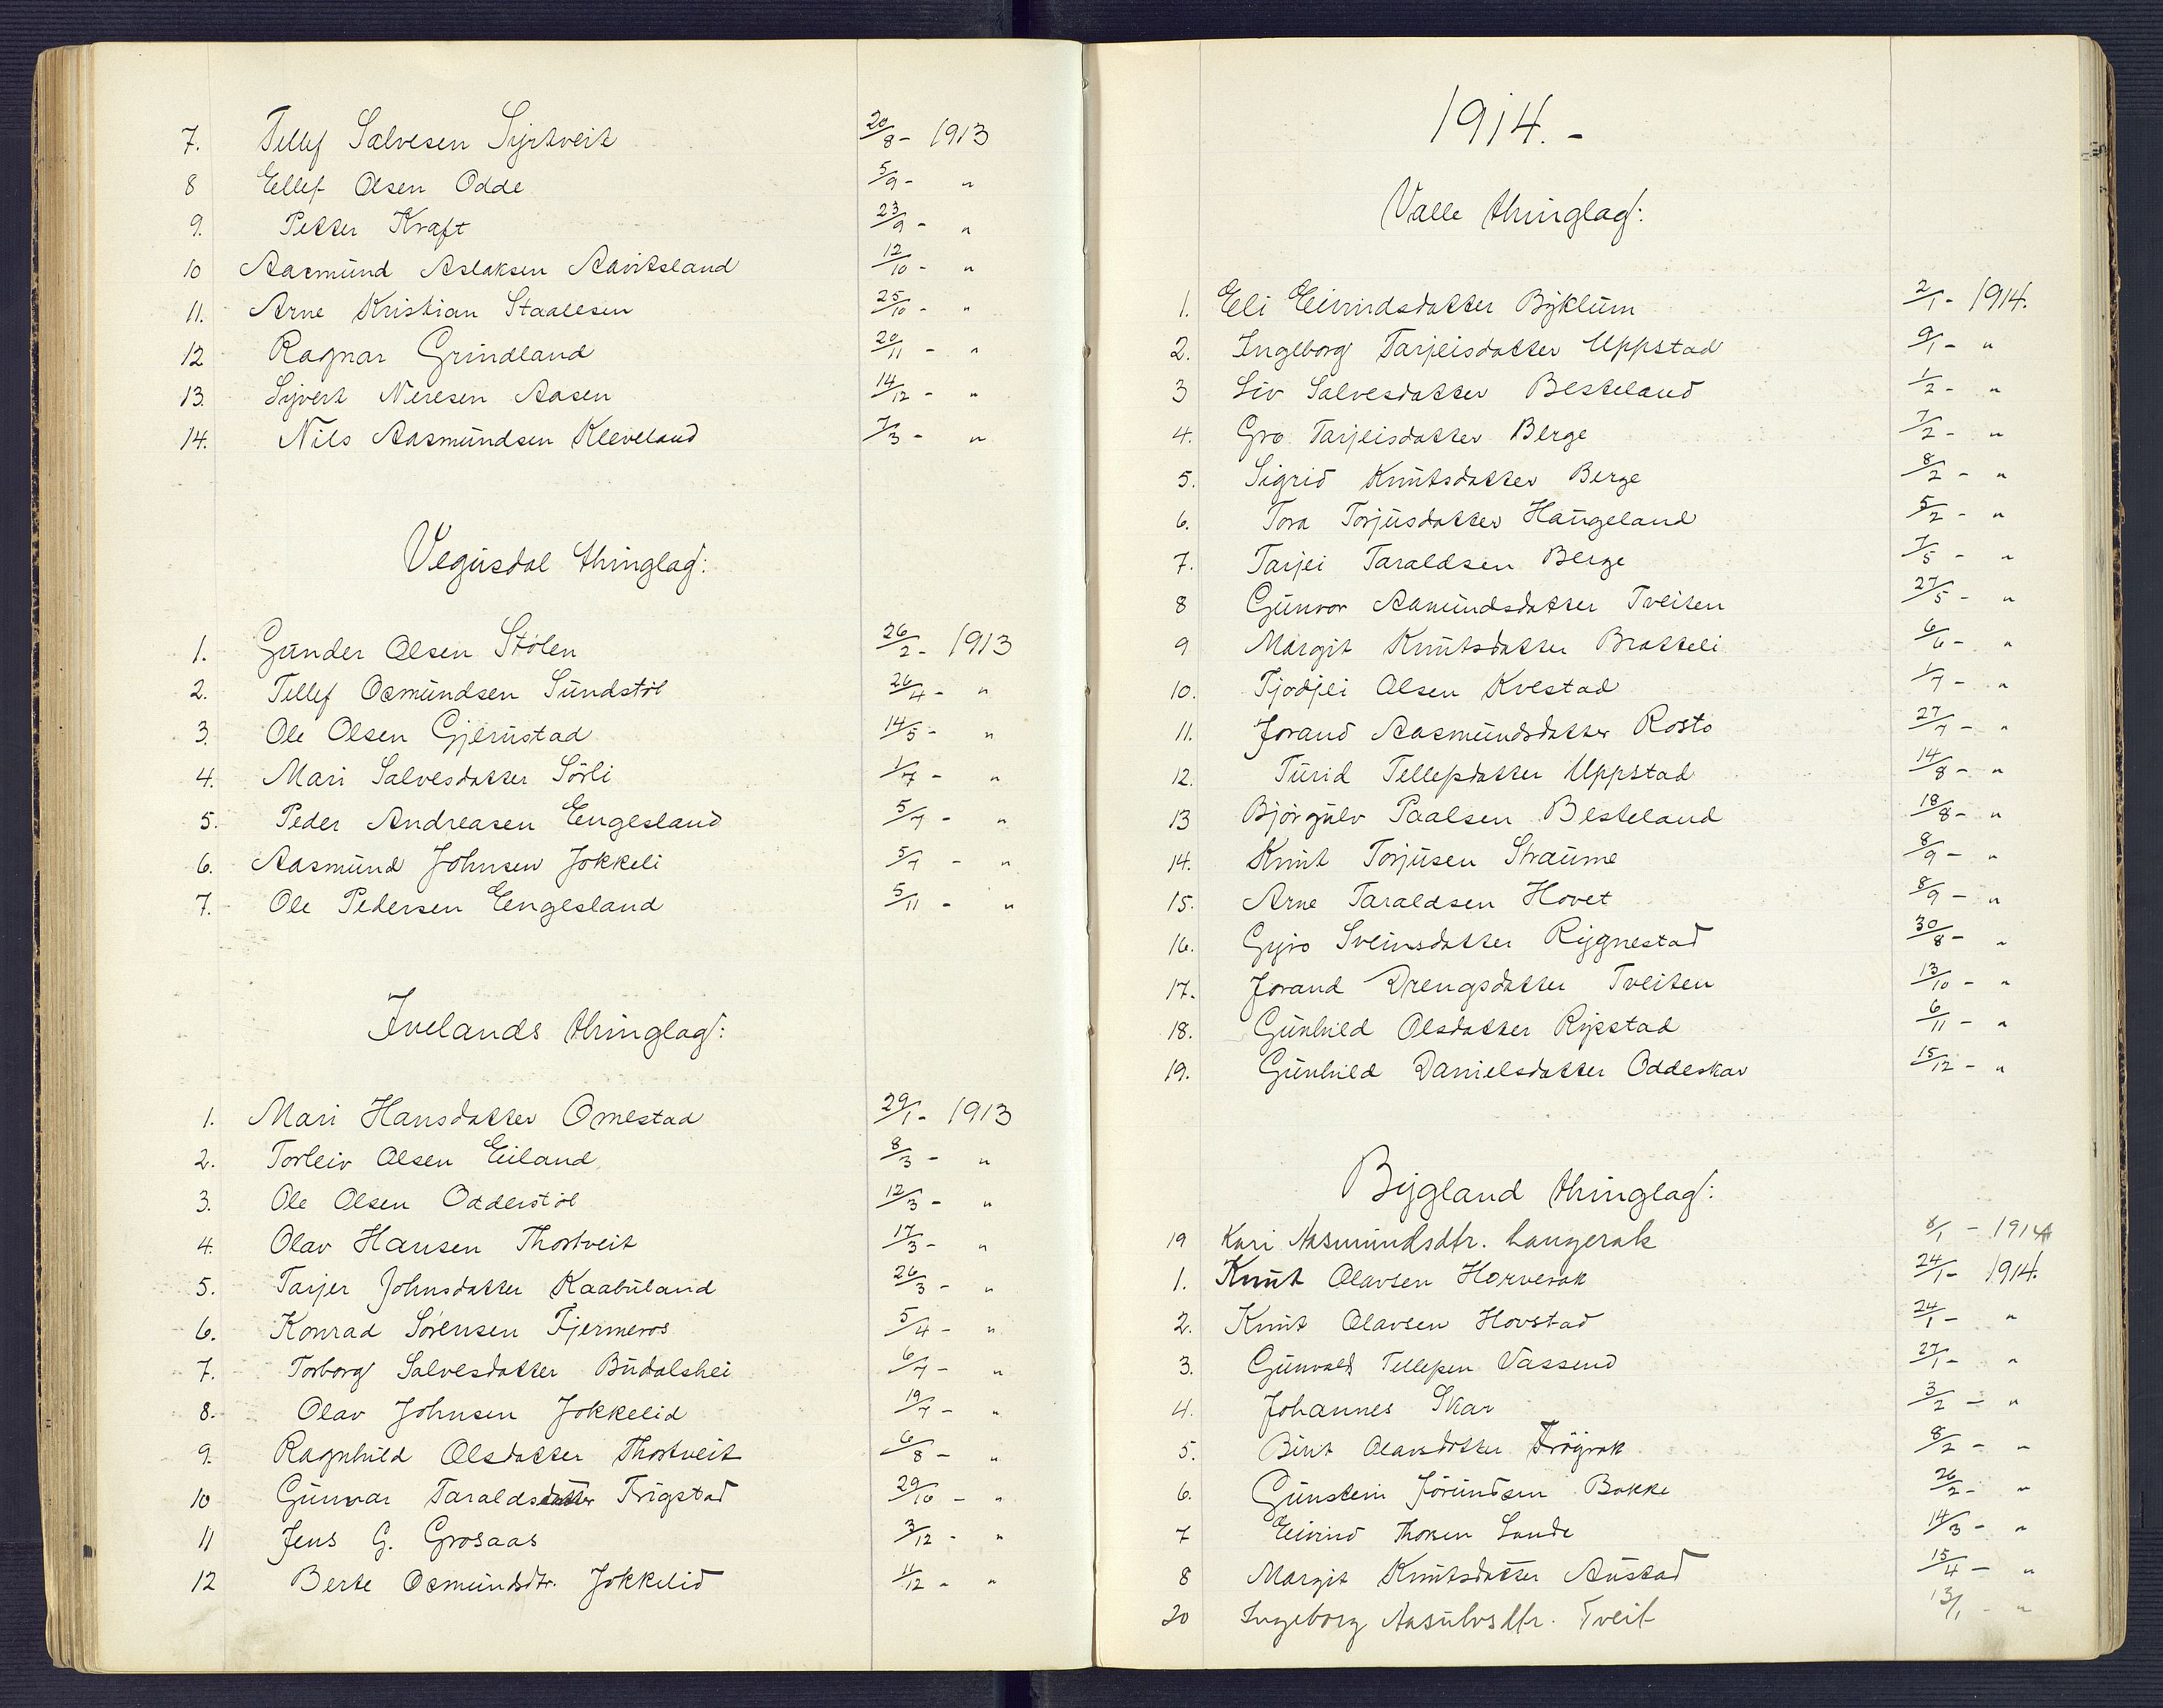 7. Tellef Salvesen Syrtveit 20/8 - 1913
8 Ellef Olsen Odde 5/9 - "
9. Petter Kraft 23/9 - "
10 Aasmund Aslaksen Aavitsland 12/10 - "
11. Arne Kristian Staalesen 25/10 - "
12 Ragnar Grindland 20/11 - "
13. Syvert Neresen Aasen 14/12 - "
14. Nils Aasmundsen Kleveland 7/3 - "
Vegusdal thinglag:
1. Gunder Olsen Stölen 26/2 - 1913
2. Tellef Osmundsen Sundstöl 26/4 - "
3. Ole Olsen Gjerustad 14/5 - "
4. Mari Salvesdatter Sörli 1/7 - "
5. Peder Andreasen Engesland 5/7 - "
6. Aasmund Johnsen Jokkeli 5/7 - "
7. Ole Pedersen Engesland 5/11 - "
Ivelands thinglag:
1. Mari Hansdatter Omestad 29/1 - 1913
2. Torleiv Olsen Eiland 8/3 - "
3. Ole Olsen Odderstöl 12/3 - "
4. Olav Hansen Thortveit 17/3 - "
5. Tarjer Johnsdatter Kaabuland 26/3 - "
6. Konrad Sörensen Fjermeros 5/4 - "
7. Torborg Salvesdatter Budalshei 6/7 - "
8. Olav Johnsen Jokkelid 19/7 - "
9. Ragnhild Olsdatter Thortveit 6/8 - "
10 Gunvar Taraldsdatter Frigstad 29/10 - "
11 Jens G. Grosaas 3/12 - "
12 Berte Osmundsdtr. Jokkelid 11/12 - "
1914. -
Valle thinglag:
1. Eli Eivindsdatter Byklum 2/1 - 1914.
2. Ingeborg Tarjeisdatter Uppstad 9/1 - "
3 Liv Salvesdatter Besteland 1/2 - "
4. Gro Tarjeisdatter Berge 7/2 - "
5. Sigrid Knutsdatter Berge 8/2 - "
6. Tora Torjusdatter Haugeland 5/2 - "
7. Tarjei Taraldsen Berge 7/5 - "
8 Gunvor Aamundsdatter Tveiten 27/5 - "
9 Margit Knutsdatter Bratteli 6/6 - "
10. Tjodjei Olsen Kvestad 1/7 - "
11. Jorand Aasmundsdatter Rosto 27/7 - "
12. Turid Tellefsdatter Uppstad 14/8 - "
13 Björgulv Paalsen Besteland 18/8 - "
14. Knut Torjusen Straume 8/9 - "
15. Arne Taraldsen Hovet 8/9 - "
16. Gyro Sveinsdatter Rygnestad 30/8 - "
17. Jorand Drengsdatter Tveiten 13/10 - "
18. Gunhild Olsdatter Rysstad 6/11 - "
19. Gunhild Danielsdatter Oddeskar 15/12 - "
Bygland thinglag:
19 Kari Aasmundsdtr. Langerak 8/1 - 1914
1. Knut Olavsen Horverak 24/1 - 1914.
2. Knut Olavsen Hovstad 24/1 - "
3. Gunvald Tellefsen Vassend 27/1 - "
4. Johannes Skar 3/2 - "
5. Birit Olavsdatter Fröyrak 8/2 - "
6. Gunstein Jörundsen Bakke 26/2 - "
7 Eivind Thorsen Sande 14/3 - "
8 Margit Knutsdatter Austad 15/4 - "
20 Ingeborg Aasulvsdtr. Tveit 13/1 - "